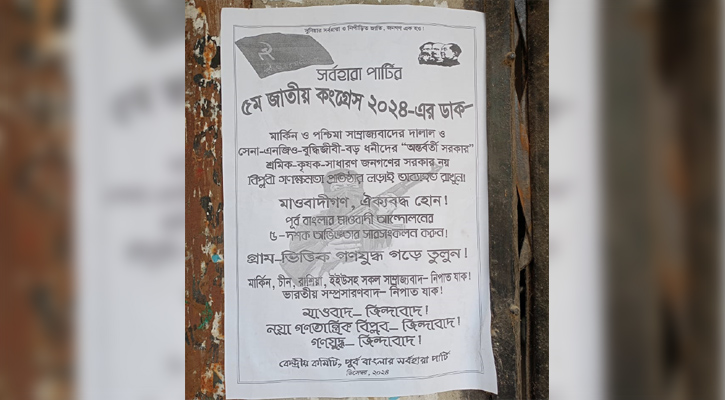 দুনিয়ার সর্বহারা ও নিপীড়িত জাতি, জনগণ এক হও!
সর্বহারা পার্টির
৫ম জাতীয় কংগ্রেস ২০২৪-এর ডাক
মার্কিন ও পশ্চিমা সাম্রাজ্যবাদের দালাল ও
সেনা-এনজিও-বুদ্ধিজীবী-বড় ধনীদের “অন্তর্বর্তী সরকার”
শ্রমিক-কৃষক-সাধারণ জনগণের সরকার নয়
বিপ্লবী গণক্ষমতা প্রতিষ্ঠার লড়াই অব্যাহত রাখুন!
মাওবাদীগণ, ঐক্যবদ্ধ হোন!
পূর্ব বাংলার মাওবাদী আন্দোলনের
৫-দশক অভিজ্ঞতার সারসংকলন করুন!
গ্রাম-ভিত্তিক গণযুদ্ধ গড়ে তুলুন!
মার্কিন, চীন, রাশিয়া, ইইউসহ সকল সাম্রাজ্যবাদ– নিপাত যাক!
ভারতীয় সম্প্রসারণবাদ– নিপাত যাক!
মাওবাদ– জিন্দাবাদ!
নয়া গণতান্ত্রিক বিপ্লব– জিন্দাবাদ!
গণযুদ্ধ– জিন্দাবাদ!
কেন্দ্রীয় কমিটি, পূর্ব বাংলার সর্বহারা পার্টি
ডিসেম্বর, ২০২৪